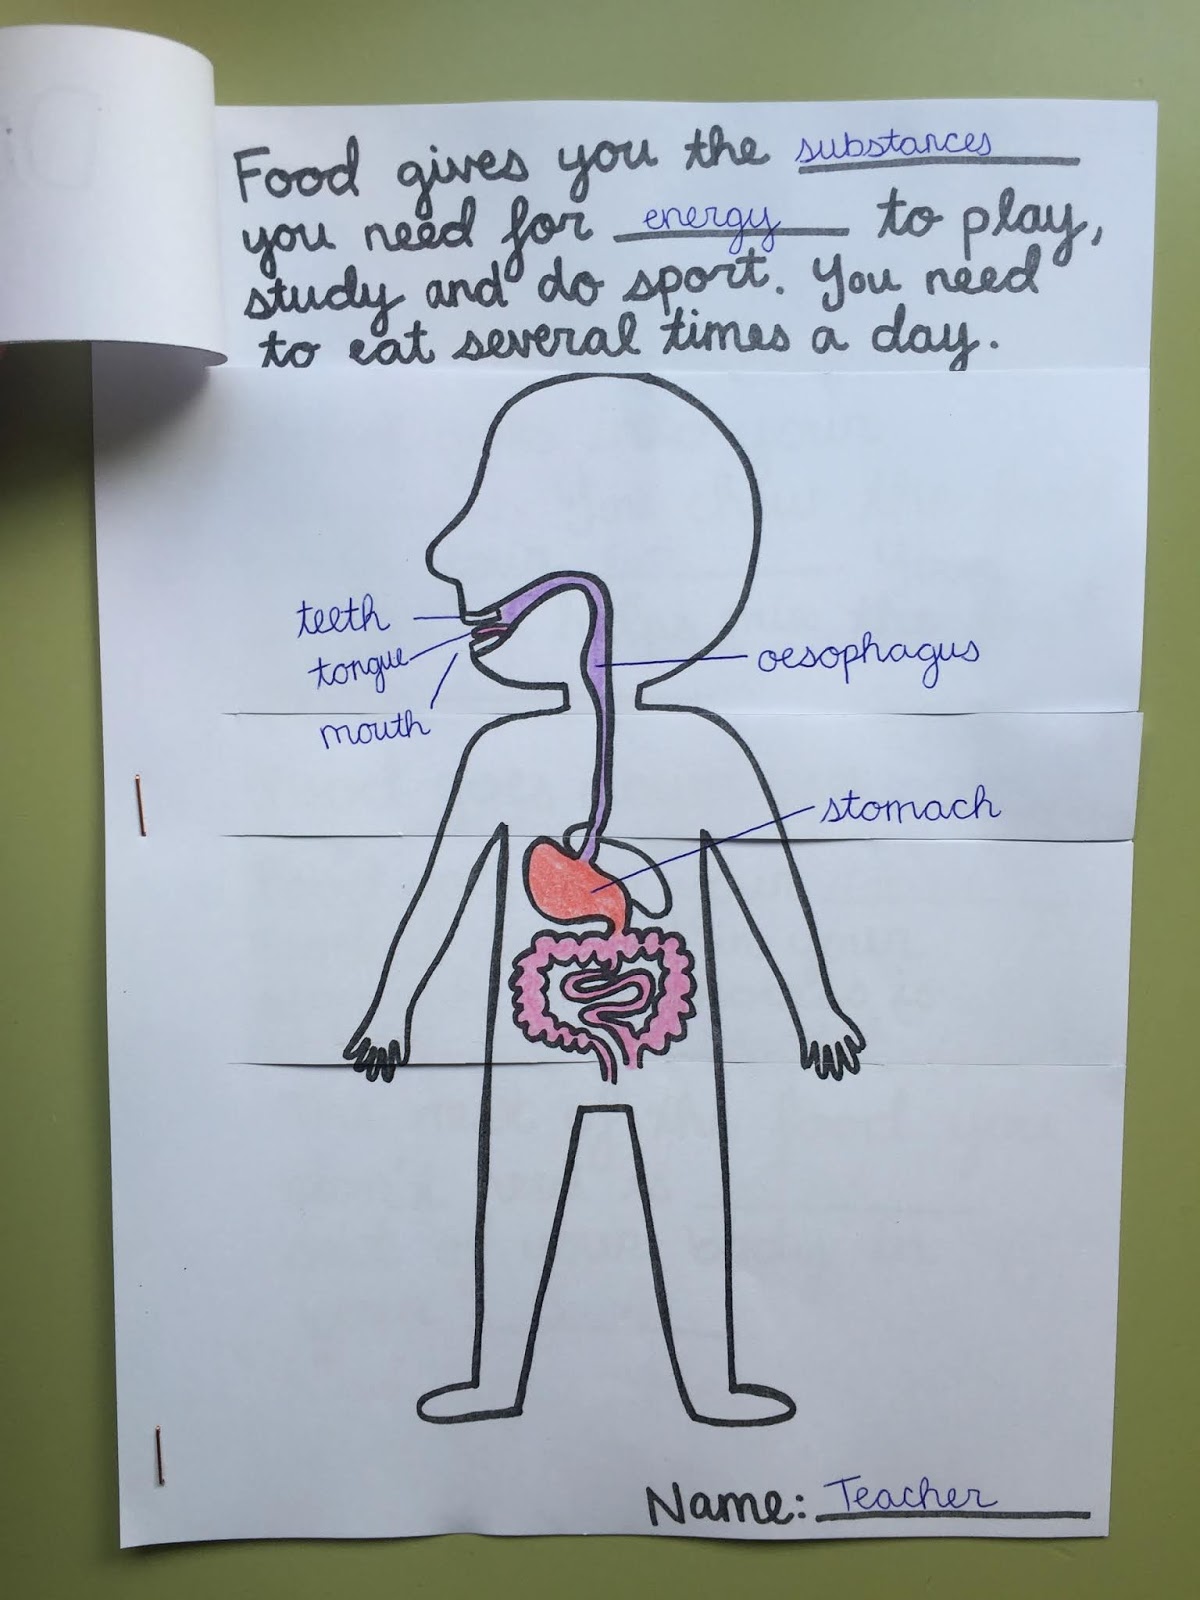 Food gives you the substances
you need for energy to play,
study and do sport. You need
to eat several times a day.
teeth
tongue
mouth
oesophagus
stomach
Name: Teacher